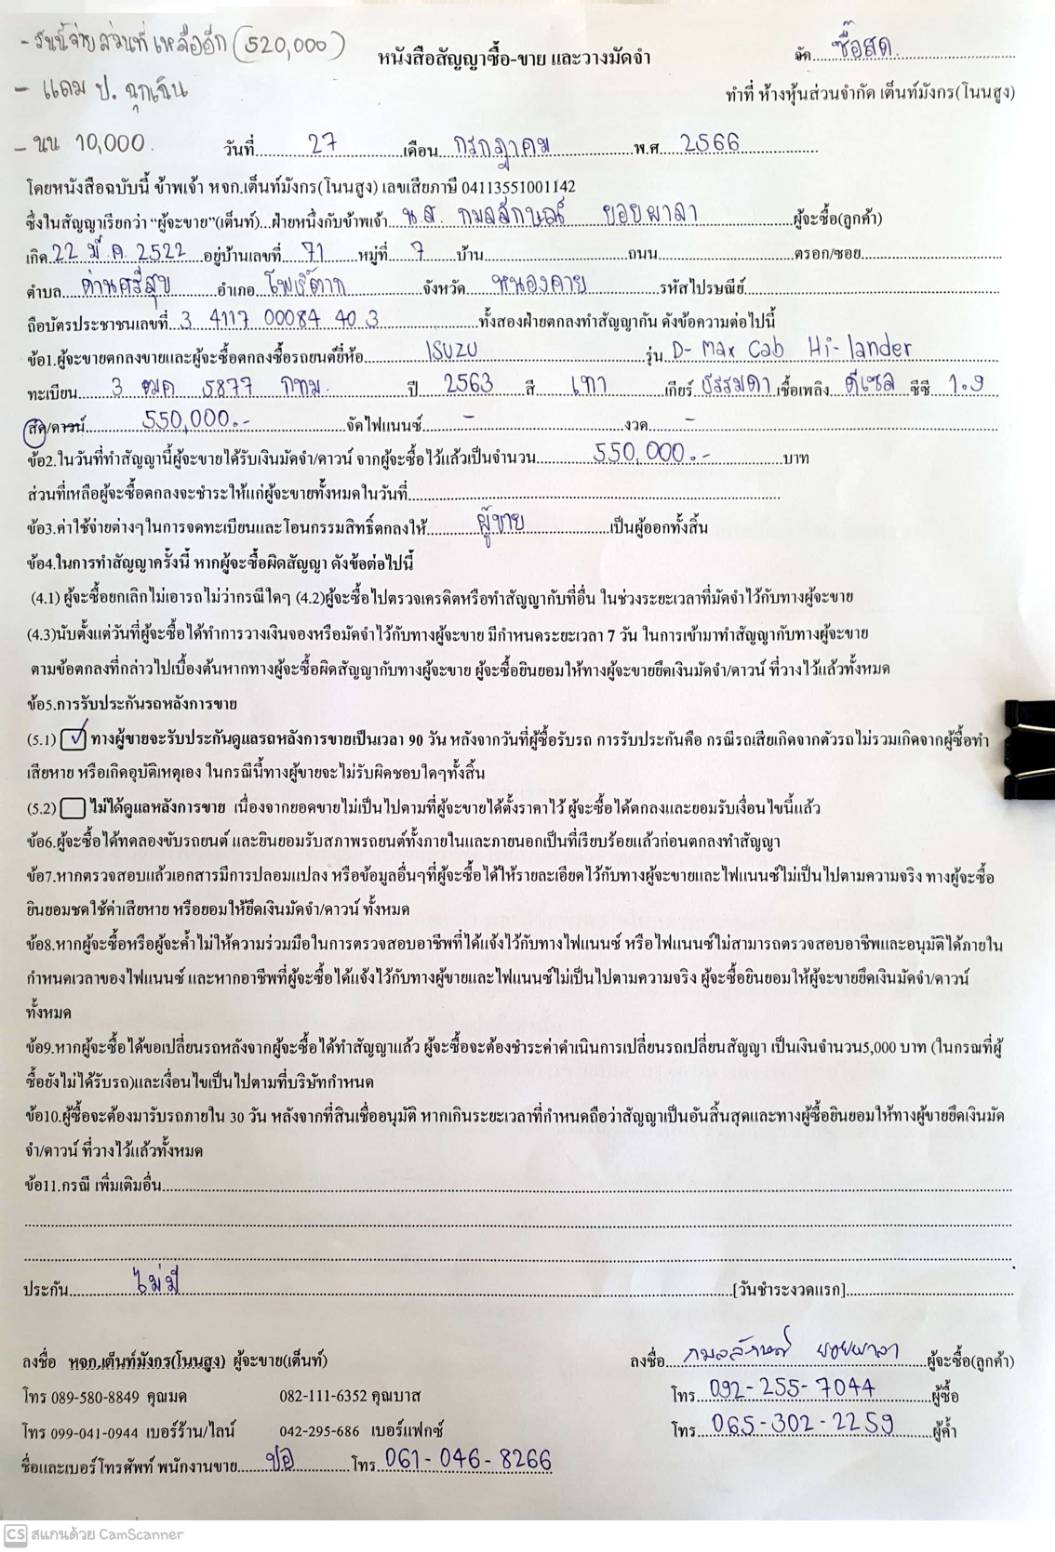 - วันนี้จ่ายส่วนที่เหลืออีก (520,000)
หนังสือสัญญาซื้อ-ขาย และวางมัดจำ
จัด ซื้อสด
- แถม ป. ฉุกเฉิน
ทำที่ ห้างหุ้นส่วนจำกัด เต็นท์มังกร(โนนสูง)
- นน 10,000.
วันที่ 27 เดือน กรกฎาคม พ.ศ 2566
โดยหนังสือฉบับนี้ ข้าพเจ้า หจก.เต็นท์มังกร(โนนสูง) เลขเสียภาษี 04113551001142
ซึ่งในสัญญาเรียกว่า "ผู้จะขาย"(เต็นท์)...ฝ่ายหนึ่งกับข้าพเจ้า น.ส. กมลลักษณ์ ยอยผาลา ผู้จะซื้อ(ลูกค้า)
เกิด 22 มี.ค. 2522 อยู่บ้านเลขที่ 71 หมู่ที่ 7 บ้าน ถนน ตรอก/ซอย
ตำบล ด่านศรีสุข อำเภอ โพธิ์ตาก จังหวัด หนองคาย รหัสไปรษณีย์
ถือบัตรประชาชนเลขที่ 3 4117 00084 40 3 ทั้งสองฝ่ายตกลงทำสัญญากัน ดังข้อความต่อไปนี้
ข้อ1.ผู้จะขายตกลงขายและผู้จะซื้อตกลงซื้อรถยนต์ยี่ห้อ ISUZU รุ่น D-Max Cab Hi-lander
ทะเบียน 3 ฒค 5877 กทม. ปี 2563 สี เทา เกียร์ ธรรมดา เชื้อเพลิง ดีเซล ซีซี 1.9
สด/ดาวน์ 550,000.- จัดไฟแนนซ์ - งวด -
ข้อ2.ในวันที่ทำสัญญานี้ผู้จะขายได้รับเงินมัดจำ/ดาวน์ จากผู้จะซื้อไว้แล้วเป็นจำนวน 550,000.- บาท
ส่วนที่เหลือผู้จะซื้อตกลงจะชำระให้แก่ผู้จะขายทั้งหมดในวันที่
ข้อ3.ค่าใช้จ่ายต่างๆในการจดทะเบียนและโอนกรรมสิทธิ์ตกลงให้ ผู้ขาย เป็นผู้ออกทั้งสิ้น
ข้อ4.ในการทำสัญญาครั้งนี้ หากผู้จะซื้อผิดสัญญา ดังข้อต่อไปนี้
(4.1) ผู้จะซื้อยกเลิกไม่เอารถไม่ว่ากรณีใดๆ (4.2)ผู้จะซื้อไปตรวจเครดิตหรือทำสัญญากับที่อื่น ในช่วงระยะเวลาที่มัดจำไว้กับทางผู้จะขาย
(4.3)นับตั้งแต่วันที่ผู้จะซื้อได้ทำการวางเงินจองหรือมัดจำไว้กับทางผู้จะขาย มีกำหนดระยะเวลา 7 วัน ในการเข้ามาทำสัญญากับทางผู้จะขาย
ตามข้อตกลงที่กล่าวไปเบื้องต้นหากทางผู้จะซื้อผิดสัญญากับทางผู้จะขาย ผู้จะซื้อยินยอมให้ทางผู้จะขายยึดเงินมัดจำ/ดาวน์ ที่วางไว้แล้วทั้งหมด
ข้อ5.การรับประกันรถหลังการขาย
(5.1) ✓ ทางผู้ขายจะรับประกันดูแลรถหลังการขายเป็นเวลา 90 วัน หลังจากวันที่ผู้ซื้อรับรถ การรับประกันคือ กรณีรถเสียเกิดจากตัวรถไม่รวมเกิดจากผู้ซื้อทำ
เสียหาย หรือเกิดอุบัติเหตุเอง ในกรณีนี้ทางผู้ขายจะไม่รับผิดชอบใดๆทั้งสิ้น
(5.2) ไม่ได้ดูแลหลังการขาย เนื่องจากยอดขายไม่เป็นไปตามที่ผู้จะขายได้ตั้งราคาไว้ ผู้จะซื้อได้ตกลงและยอมรับเงื่อนไขนี้แล้ว
ข้อ6.ผู้จะซื้อได้ทดลองขับรถยนต์ และยินยอมรับสภาพรถยนต์ทั้งภายในและภายนอกเป็นที่เรียบร้อยแล้วก่อนตกลงทำสัญญา
ข้อ7.หากตรวจสอบแล้วเอกสารมีการปลอมแปลง หรือข้อมูลอื่นๆที่ผู้จะซื้อได้ให้รายละเอียดไว้กับทางผู้จะขายและไฟแนนซ์ไม่เป็นไปตามความจริง ทางผู้จะซื้อ
ยินยอมชดใช้ค่าเสียหาย หรือยอมให้ยึดเงินมัดจำ/ดาวน์ ทั้งหมด
ข้อ8.หากผู้จะซื้อหรือผู้จะค้ำไม่ให้ความร่วมมือในการตรวจสอบอาชีพที่ได้แจ้งไว้กับทางไฟแนนซ์ หรือไฟแนนซ์ไม่สามารถตรวจสอบอาชีพและอนุมัติได้ภายใน
กำหนดเวลาของไฟแนนซ์ และหากอาชีพที่ผู้จะซื้อได้แจ้งไว้กับทางผู้ขายและไฟแนนซ์ไม่เป็นไปตามความจริง ผู้จะซื้อยินยอมให้ผู้จะขายยึดเงินมัดจำ/ดาวน์
ทั้งหมด
ข้อ9.หากผู้จะซื้อได้ขอเปลี่ยนรถหลังจากผู้จะซื้อได้ทำสัญญาแล้ว ผู้จะซื้อจะต้องชำระค่าดำเนินการเปลี่ยนรถเปลี่ยนสัญญา เป็นเงินจำนวน5,000 บาท (ในกรณที่ผู้
ซื้อยังไม่ได้รับรถ)และเงื่อนไขเป็นไปตามที่บริษัทกำหนด
ข้อ10.ผู้ซื้อจะต้องมารับรถภายใน 30 วัน หลังจากที่สินเชื่ออนุมัติ หากเกินระยะเวลาที่กำหนดถือว่าสัญญาเป็นอันสิ้นสุดและทางผู้ซื้อยินยอมให้ทางผู้ขายยึดเงินมัด
จำ/ดาวน์ ที่วางไว้แล้วทั้งหมด
ข้อ11.กรณี เพิ่มเติมอื่น
ประกัน ไม่มี [วันชำระงวดแรก]
ลงชื่อ หจก.เต็นท์มังกร(โนนสูง) ผู้จะขาย(เต็นท์) ลงชื่อ กมลลักษณ์ ยอยผาลา ผู้จะซื้อ(ลูกค้า)
โทร 089-580-8849 คุณมด 082-111-6352 คุณบาส โทร 092-255-7044 ผู้ซื้อ
โทร 099-041-0944 เบอร์ร้าน/ไลน์ 042-295-686 เบอร์แฟกซ์ โทร 065-302-2259 ผู้ค้ำ
ชื่อและเบอร์โทรศัพท์ พนักงานขาย ปอ โทร 061-046-8266
CS สแกนด้วย CamScanner